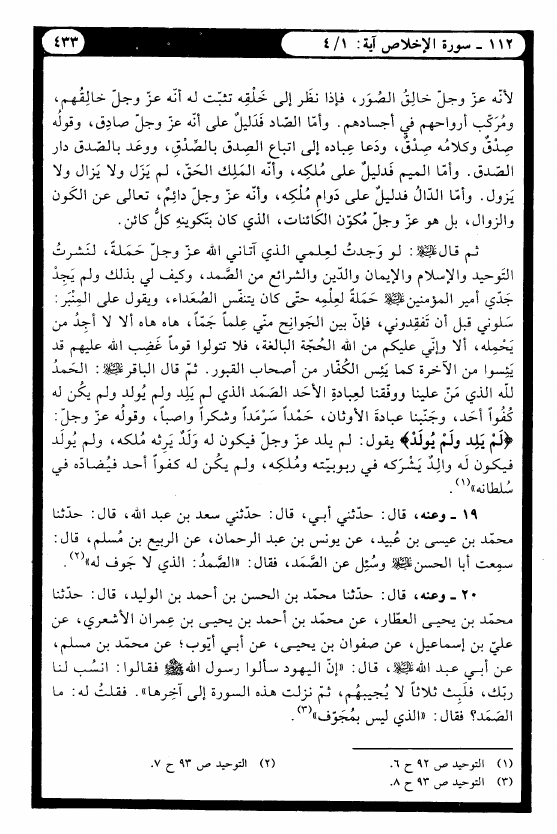 ١١٢ ـ سورة الإخلاص آية: ٤/١
٤٣٣
لأنّه عزّ وجلّ خالِقُ الصُوَر، فإذا نظَر إلى خَلْقِه تثبّت له أنّه عزّ وجلّ خالِقُهم،
ومُركّب أرواحهم في أجسادهم. وأمّا الصّاد فَدَليلٌ على أنّه عزّ وجلّ صادِق، وقولُه
صِدْقٌ وكلامُه صِدْقٌ، ودَعا عِباده إلى اتباع الصِدق بالصِّدْقِ، ووعَد بالصِّدق دار
الصّدق. وأمّا الميم فَدليلٌ على مُلكِه، وأنّه المَلِك الحَقّ، لم يَزَل ولا يَزال ولا
يَزول. وأمّا الدّالُ فدليلٌ على دَوامِ مُلْكِه، وأنّه عزّ وجلّ دائِمٌ، تعالى عن الكَون
والزوال، بل هو عزّ وجلّ مُكوّن الكَائنات، الذي كان بتَكوينهِ كلُّ كائن.
ثم قال ﷺ: لو وَجدتُ لعِلمي الذي آتاني الله عزّ وجلّ حَمَلةً، لنَشرتُ
التَوحيد والإسلام والإيمان والدِّين والشرائع من الصَّمد، وكيف لي بذلك ولم يَجِدْ
جَدّي أمير المؤمنين ﷺ حَمَلةً لعِلمِه حتّى كان يتنفّس الصُعداء، ويقول على المِنْبَر:
سَلوني قبل أن تَفقِدوني، فإنّ بين الجَوانِح منّي عِلماً جَمّاً، هاه هاه ألا لا أجِدُ من
يَحمِله، ألا وإنّي عليكم من الله الحُجّة البالغة، فلا تتولوا قوماً غَضِب الله عليهم قد
يَئِسوا من الآخرة كما يَئِس الكُفّار من أصحاب القبور. ثمّ قال الباقر ﷺ: الحَمدُ
لله الذي مَنّ علينا ووفّقنا لعِبادةِ الأحَد الصَمَد الذي لم يَلِد ولم يُولد ولم يكُن له
كُفُواً أحَد، وجَنّبنا عبادةَ الأوثان، حَمْداً سَرْمَداً وشكراً واصباً، وقولُه عزّ وجلّ:
﴿لَمْ يَلِد ولَمْ يُولَدْ﴾ يقول: لم يلد عزّ وجلّ فيكون له وَلَدٌ يَرِثه مُلكه، ولم يُولَد
فيكون لَه والِدٌ يَشْركه في ربوبيّته ومُلكِه، ولم يكُن له كفواً أحد فيُضادّه في
سُلطانه»(١).
١٩ ـ وعنه، قال: حدّثني أبي، قال: حدّثني سعد بن عبد الله، قال: حدّثنا
محمّد بن عيسى بن عُبيد، عن يونس بن عبد الرحمان، عن الربيع بن مُسلم، قال:
سمِعت أبا الحسن ﷺ وسُئِل عن الصَّمَد، فقال: «الصَّمدُ: الذي لا جَوف له»(٢).
٢٠ ـ وعنه، قال: حدّثنا محمّد بن الحسن بن أحمد بن الوليد، قال: حدّثنا
محمّد بن يحيى العطّار، عن محمّد بن أحمد بن يحيى بن عِمران الأشعري، عن
عليّ بن إسماعيل، عن صفوان بن يحيى، عن أبي أيّوب؛ عن محمّد بن مسلم،
عن أبي عبد الله ﷺ، قال: «إنّ اليهود سألوا رسول الله ﷺ فقالوا: انسُب لنا
ربّك، فلَبِث ثلاثاً لا يُجيبهُم، ثمّ نزلت هذه السورة إلى آخِرها». فقلتُ له: ما
الصَمَد؟ فقال: «الذي ليس بمُجَوّف»(٣).
(١) التوحيد ص ٩٢ ح ٦.
(٢) التوحيد ص ٩٣ ح ٧.
(٣) التوحيد ص ٩٣ ح ٨.